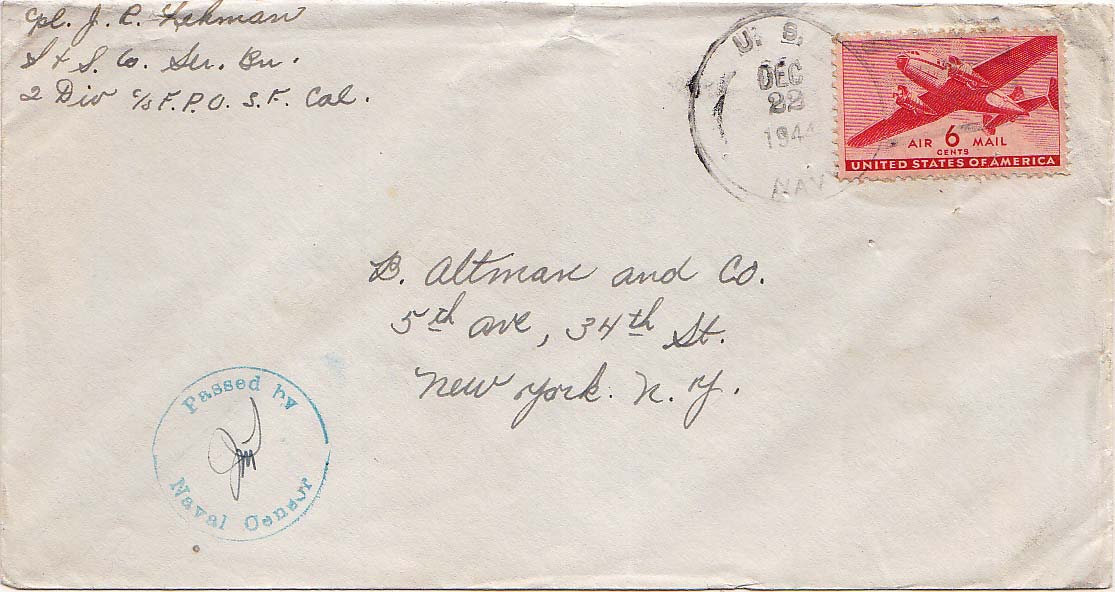 Cpl. J. C. Lehman
S + S. Co. Ser. Bn.
2 Div c/o F.P.O. S.F. Cal.
U. S.
DEC
22
1944
NAVY
AIR 6 MAIL
CENTS
UNITED STATES OF AMERICA
B. Altman and Co.
5th ave, 34th St.
New York. N. Y.
Passed by
Naval Censor